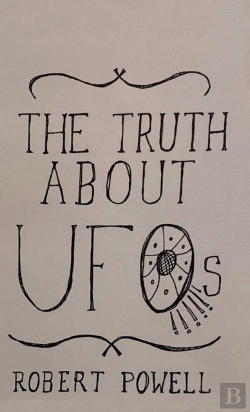 THE TRUTH
ABOUT
UFOs
ROBERT POWELL
B